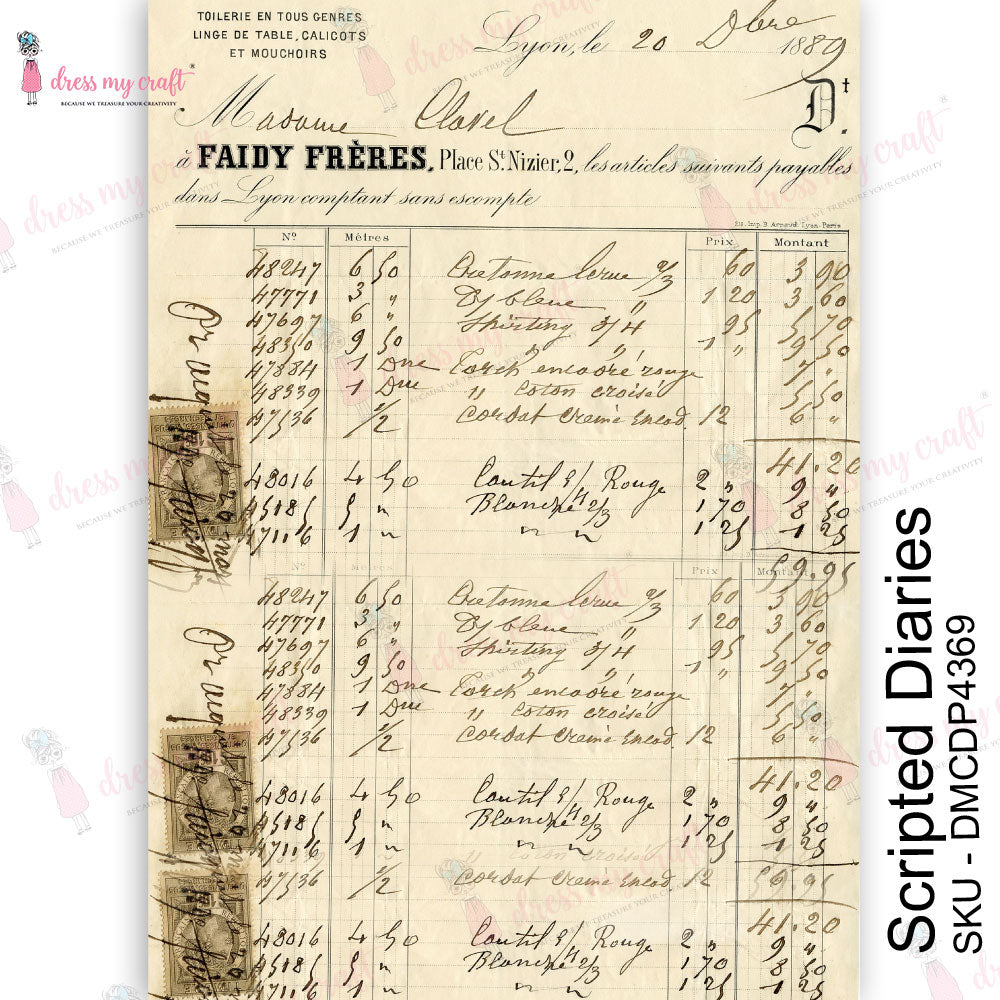 TOILERIE EN TOUS GENRES
LINGE DE TABLE, CALICOTS
ET MOUCHOIRS
dress my craft®
BECAUSE WE TREASURE YOUR CREATIVITY
Lyon, le 20 Dbre 1889
Madame Clavel
Dt.
à FAIDY FRÈRES, Place St. Nizier, 2, les articles suivants payables
dans Lyon comptant sans escompte
Nº Mètres Prix Montant
48247 6 50 Cretonne 2/3 60 3 90
47771 3 " bleue " 1 20 3 60
47697 6 " Shirting 3/4 95 5 70
48350 9 50 " 1 " 9 50
47884 1 Dne Torch encadré rouge 7 "
48339 1 Dne " coton croisé 5 50
47536 1/2 Cordat Creme encad. 12 6 "
41.20
48016 4 50 Coutil Rouge 2 " 9 "
45185 5 " Blanche 2/3 1 70 8 50
47116 1 " " " 1 25 1 25
59.95
Nº Mètres Prix Montant
48247 6 50 Cretonne 2/3 60 3 90
47771 3 " bleue " 1 20 3 60
47697 6 " Shirting 3/4 95 5 70
48350 9 50 " 1 " 9 50
47884 1 Dne Torch encadré rouge 7 "
48339 1 Dne " coton croisé 5 50
47536 1/2 Cordat Creme encad. 12 6 "
41.20
48016 4 50 Coutil Rouge 2 " 9 "
45185 5 " Blanche 2/3 1 70 8 50
47116 1 " " " 1 25 1 25
47536 1/2 Cordat Creme encad. 12 59.95
41.20
48016 4 50 Coutil Rouge 2 " 9 "
45185 5 " Blanche 2/3 1 70 8 50
47116 1 " " " 1 25 1 25
Scripted Diaries
SKU - DMCDP4369